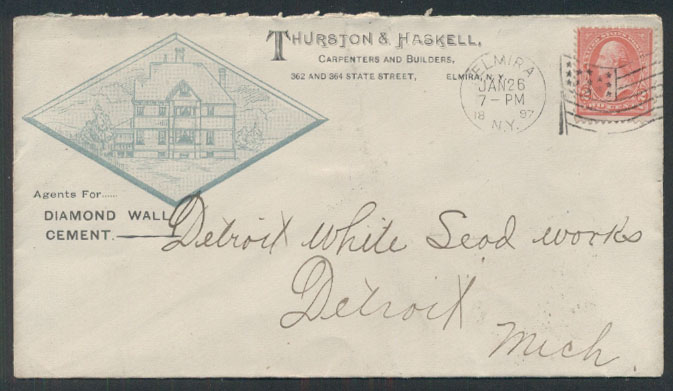 THURSTON & HASKELL,
CARPENTERS AND BUILDERS,
362 AND 364 STATE STREET, ELMIRA, N.Y.
ELMIRA
JAN 26
7-PM
18 97
N.Y.
Agents For.....
DIAMOND WALL
CEMENT.
Detroit White Lead works
Detroit
Mich.